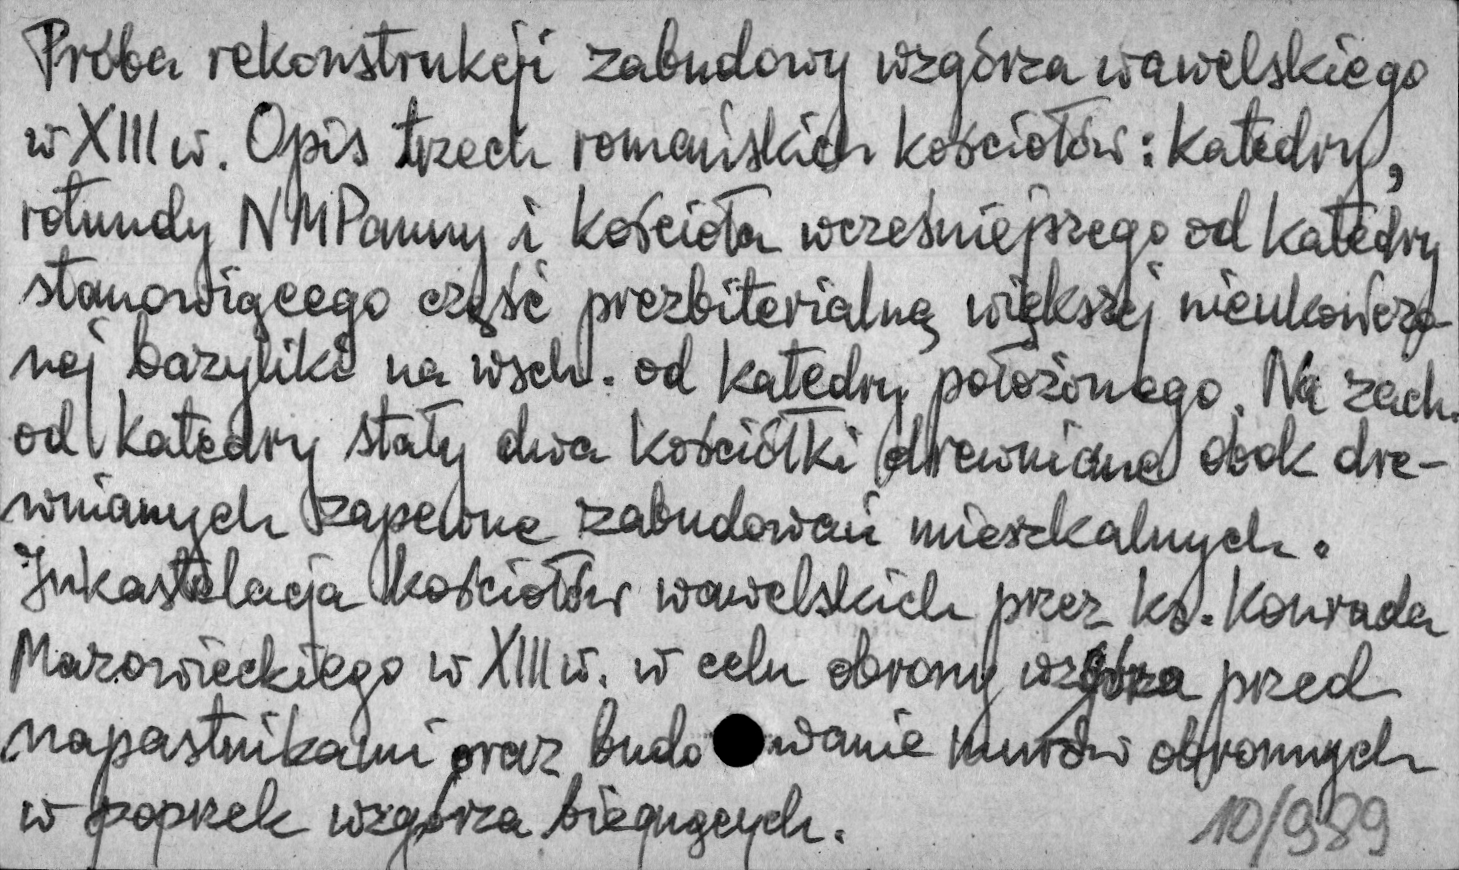 Próba rekonstrukcji zabudowy wzgórza wawelskiego
w XIII w. Opis trzech romańskich kościołów: katedry,
rotundy NMPanny i kościoła wcześniejszego od katedry
stanowiącego część prezbiterialną większej nieukończo-
nej bazyliki na wsch. od katedry położonego. Na zach.
od katedry stały dwa kościółki drewniane obok dre-
wnianych zapewne zabudowań mieszkalnych.
Inkastelacja kościołów wawelskich przez ks. Konrada
Mazowieckiego w XIII w. w celu obrony wzgórza przed
napastnikami oraz budowanie murów obronnych
w poprzek wzgórza biegnących.
10/989